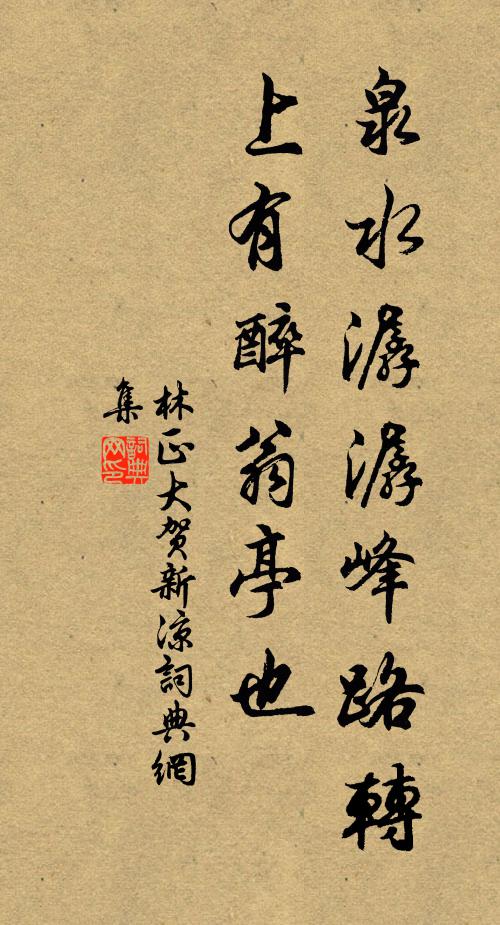 泉水潺潺峰路轉
上有醉翁亭也
林正大賀新涼詞典網
集
詞典网印